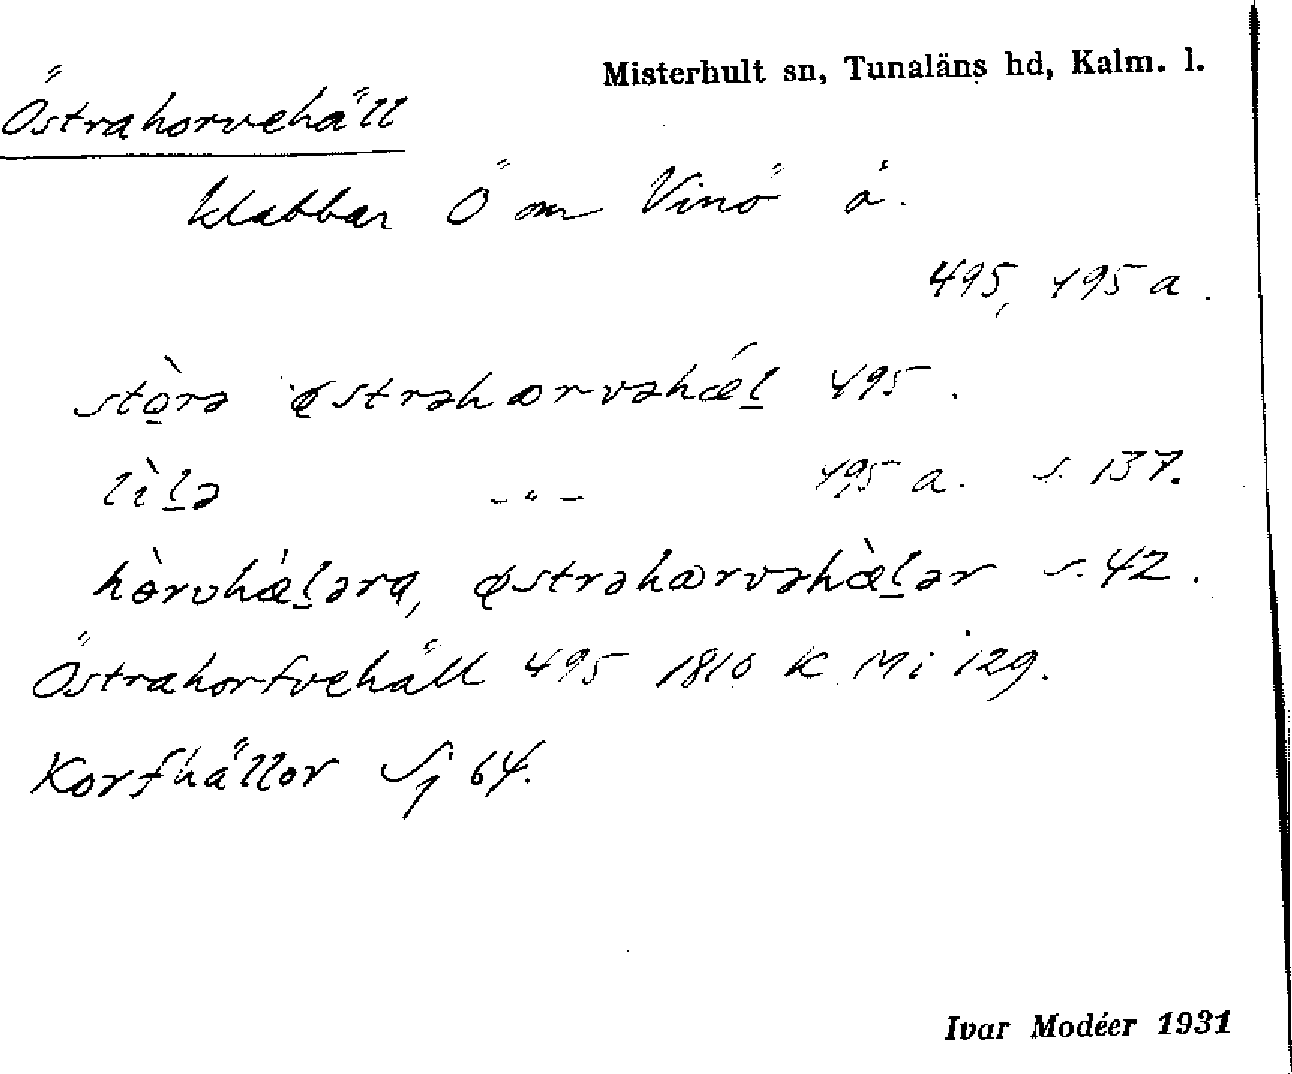 Misterhult sn, Tunaläns hd, Kalm. l.
Östrahorvehäll
klabbar Ö om Vinö å.
495, 495 a.
stò̠rə østrəhorvəhǽl̠ 495.
lìl̠ə -"- 495 a. s. 137.
hòrvhæ̀l̠ərа, østrəhorvəhæ̀l̠ər s. 42.
Östrahorfvehäll 495 1810 K Mi 129.
Korfhällor Sj 64.
Ivar Modéer 1931